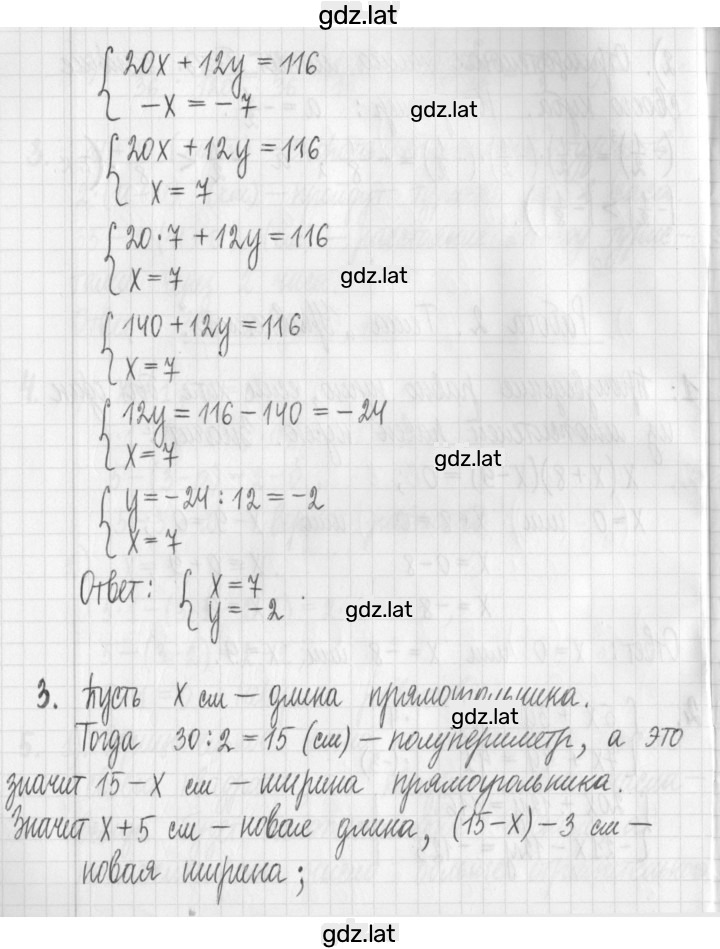 gdz.lat
20x + 12y = 116
-x = -7
gdz.lat
20x + 12y = 116
x = 7
20·7 + 12y = 116
x = 7
gdz.lat
140 + 12y = 116
x = 7
12y = 116 - 140 = -24
x = 7
gdz.lat
y = -24 : 12 = -2
x = 7
Ответ: x = 7
y = -2
gdz.lat
3. Пусть x см — длина прямоугольника.
gdz.lat
Тогда 30 : 2 = 15 (см) — полупериметр, а это
значит 15 - x см — ширина прямоугольника.
Значит x + 5 см — новая длина, (15 - x) - 3 см —
новая ширина;
gdz.lat